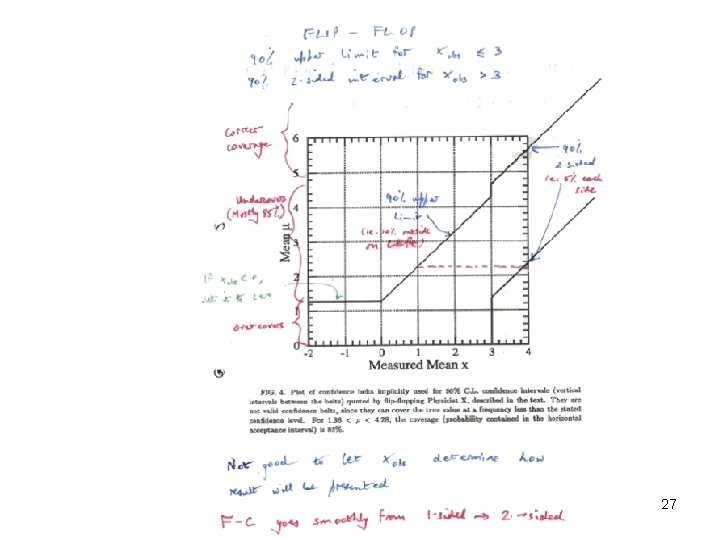 FLIP - FLOP
90% upper limit for x obs ≤ 3
90% 2-sided interval for x obs > 3
Correct
coverage
Undercovers
(Mostly 85%)
If x obs < 0,
set it to zero
Overcovers
90% upper
limit
(i.e. 10% outside
on left)
90%
2 sided
i.e. 5% each
side
6
5
4
3
2
1
0
Mean μ
-2 -1 0 1 2 3 4
Measured Mean x
FIG. 4. Plot of confidence belts implicitly used for 90% C.L. confidence intervals (vertical
intervals between the belts) quoted by flip-flopping Physicist X, described in the text. They are
not valid confidence belts, since they can cover the true value at a frequency less than the stated
confidence level. For 1.36 < μ < 4.28, the coverage (probability contained in the horizontal
acceptance interval) is 85%.
Not good to let x obs determine how
result will be presented
F-C goes smoothly from 1-sided → 2-sided
27